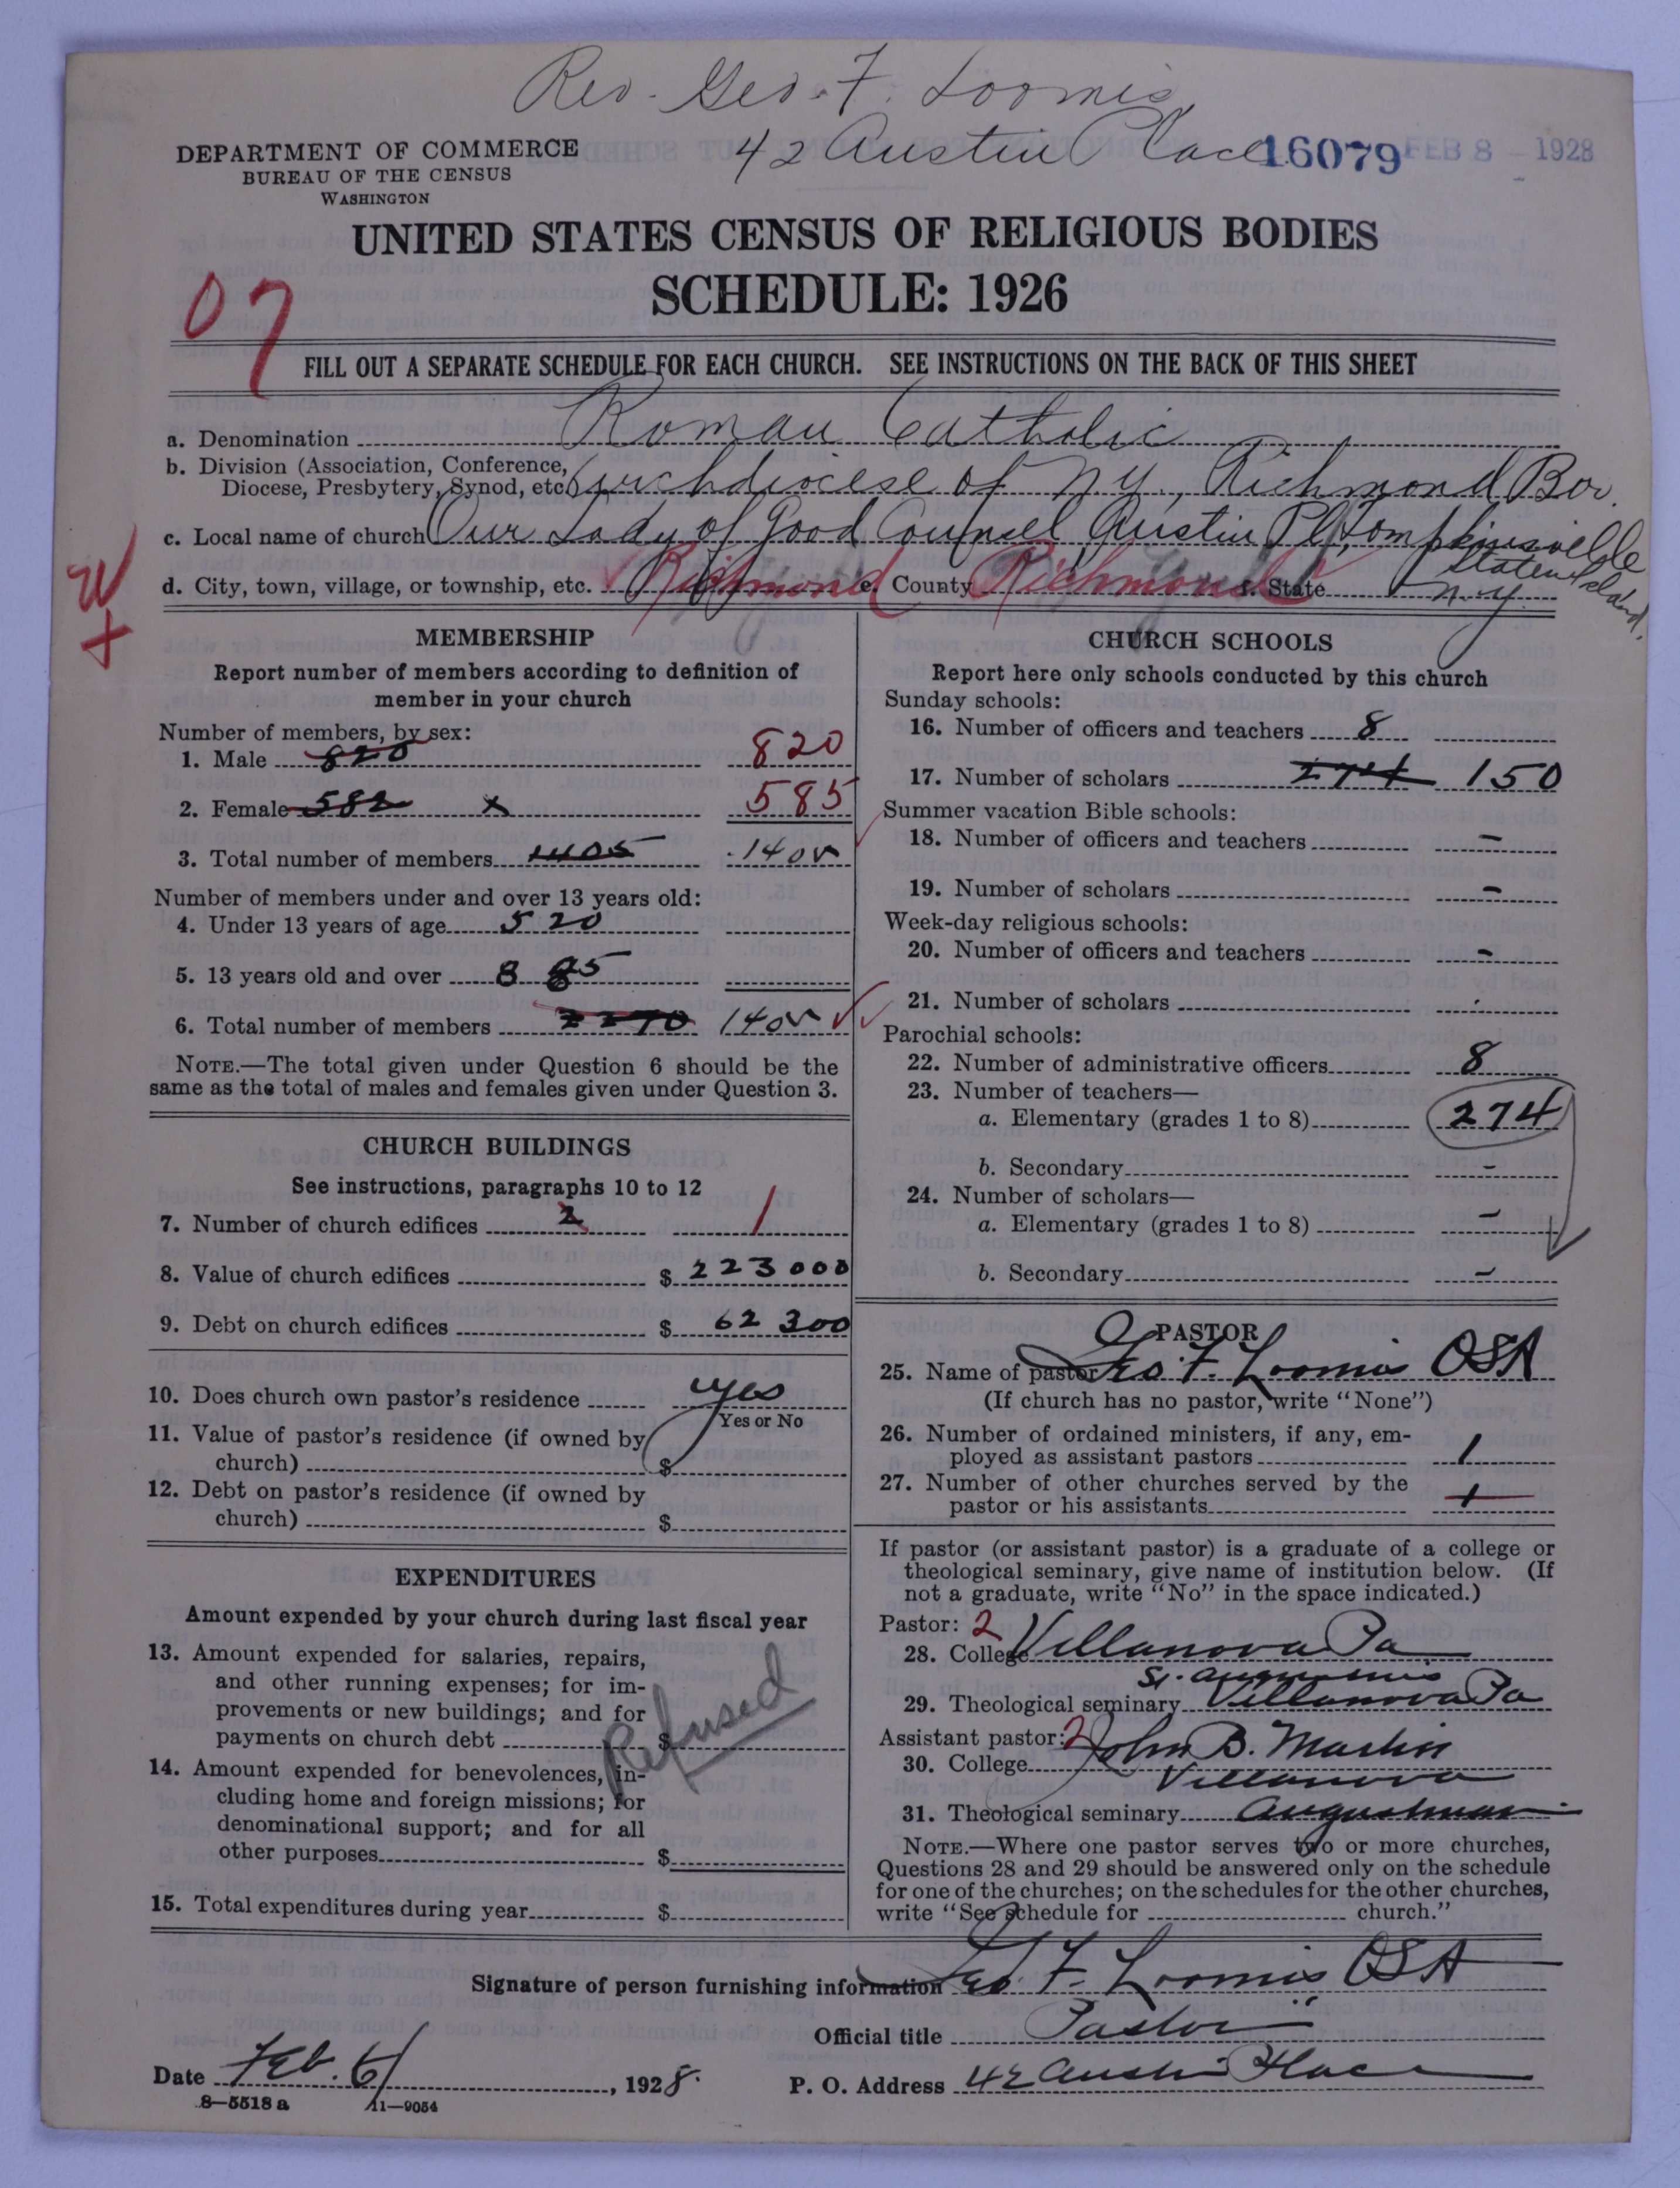 Rev. Geo. F. Loomis
42 Austin Place
16079 FEB 8 - 1928
DEPARTMENT OF COMMERCE
BUREAU OF THE CENSUS
WASHINGTON
UNITED STATES CENSUS OF RELIGIOUS BODIES
SCHEDULE: 1926
07
FILL OUT A SEPARATE SCHEDULE FOR EACH CHURCH. SEE INSTRUCTIONS ON THE BACK OF THIS SHEET
a. Denomination Roman Catholic
b. Division (Association, Conference,
Diocese, Presbytery, Synod, etc.) Archdiocese of N.Y., Richmond Boro.
c. Local name of church Our Lady of Good Counsel Austin Pl, Tompkinsville
Staten Island,
d. City, town, village, or township, etc. Richmond e. County Richmond f. State N.Y.
MEMBERSHIP
Report number of members according to definition of
member in your church
Number of members, by sex:
1. Male 820 820
2. Female 582 x 585
3. Total number of members 1405 1405
Number of members under and over 13 years old:
4. Under 13 years of age 520
5. 13 years old and over 885
6. Total number of members 2270 1405
NOTE.—The total given under Question 6 should be the
same as the total of males and females given under Question 3.
CHURCH BUILDINGS
See instructions, paragraphs 10 to 12
7. Number of church edifices 2 1
8. Value of church edifices $ 223000
9. Debt on church edifices $ 62 300
10. Does church own pastor's residence yes
Yes or No
11. Value of pastor's residence (if owned by
church) $
12. Debt on pastor's residence (if owned by
church) $
EXPENDITURES
Amount expended by your church during last fiscal year
13. Amount expended for salaries, repairs,
and other running expenses; for im-
provements or new buildings; and for
payments on church debt $
Refused
14. Amount expended for benevolences, in-
cluding home and foreign missions; for
denominational support; and for all
other purposes $
15. Total expenditures during year $
CHURCH SCHOOLS
Report here only schools conducted by this church
Sunday schools:
16. Number of officers and teachers 8
17. Number of scholars 274 150
Summer vacation Bible schools:
18. Number of officers and teachers -
19. Number of scholars -
Week-day religious schools:
20. Number of officers and teachers -
21. Number of scholars
Parochial schools:
22. Number of administrative officers 8
23. Number of teachers—
a. Elementary (grades 1 to 8) 274
b. Secondary -
24. Number of scholars—
a. Elementary (grades 1 to 8) -
b. Secondary -
PASTOR
25. Name of pastor Geo. F. Loomis OSA
(If church has no pastor, write "None")
26. Number of ordained ministers, if any, em-
ployed as assistant pastors 1
27. Number of other churches served by the
pastor or his assistants 1
If pastor (or assistant pastor) is a graduate of a college or
theological seminary, give name of institution below. (If
not a graduate, write "No" in the space indicated.)
Pastor: 2
28. College Villanova Pa
St. Augustines
29. Theological seminary Villanova Pa
Assistant pastor: 2 John B. Martin
30. College Villanova
31. Theological seminary Augustinian
NOTE.—Where one pastor serves two or more churches,
Questions 28 and 29 should be answered only on the schedule
for one of the churches; on the schedules for the other churches,
write "See schedule for church."
Signature of person furnishing information Geo. F. Loomis OSA
Official title Pastor
Date Feb. 6/, 1928. P. O. Address 42 Austin Place
8—5518 a 11—9054